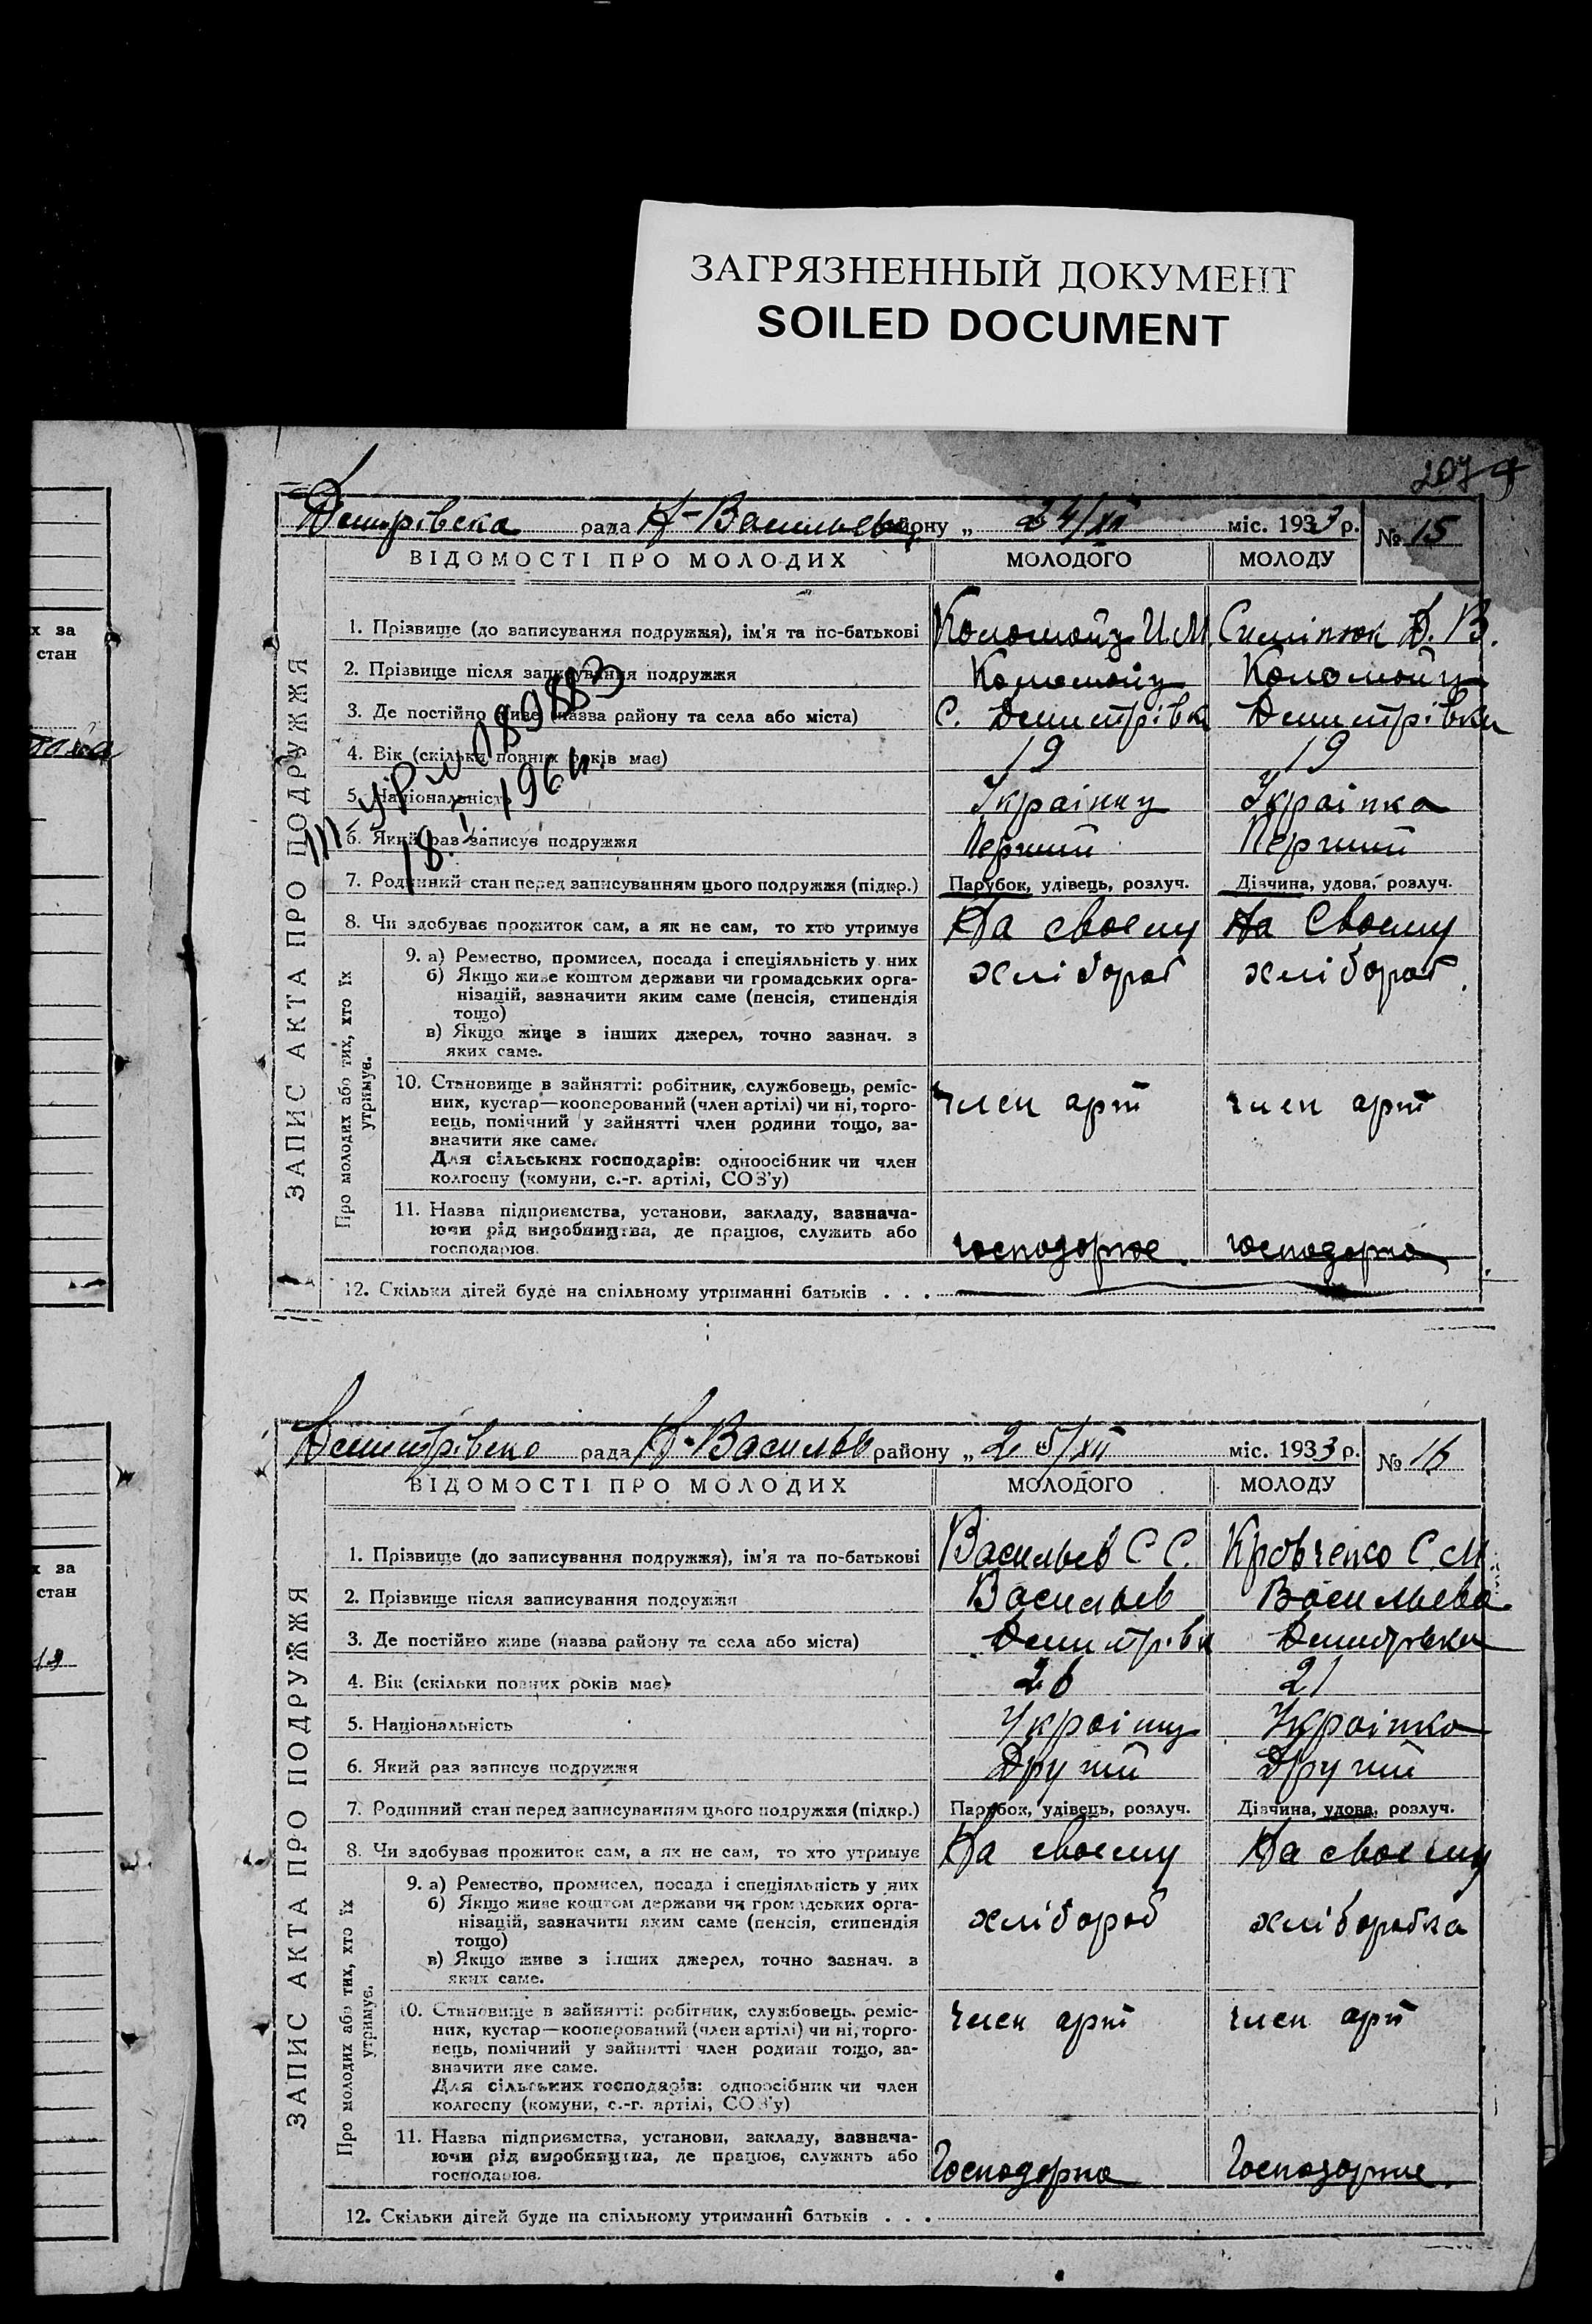 ЗАГРЯЗНЕННЫЙ ДОКУМЕНТ
SOILED DOCUMENT
207
рада района „ 24/XII міс. 1933 р. № 15
ВІДОМОСТІ ПРО МОЛОДИХ МОЛОДОГО МОЛОДУ
ЗАПИС АКТА ПРО ПОДРУЖЖЯ
1. Прізвище (до записування подружжя), ім'я та по-батькові Коломойц И.М. В.
2. Прізвище після записування подружжя Коломойц Коломойц
3. Де постійно живе (назва району та села або міста) С. Демитрівк Демитрівки
4. Вік (скільки повних років має) 19 19
5. Національність Українц Українка
6. Який раз записує подружжя Перший Перший
7. Родинний стан перед записуванням цього подружжя (підкр.) Парубок, удівець, розлуч. Дівчина, удова, розлуч.
8. Чи здобуває прожиток сам, а як не сам, то хто утримує На своему На Своему
Про молодих або тих, хто їх утримує.
9. а) Ремество, промисел, посада і спеціяльність у них хлібороб хлібороб
б) Якщо живе коштом держави чи громадських орга-
нізацій, зазначити яким саме (пенсія, стипендія
тощо)
в) Якщо живе з інших джерел, точно зазнач. з
яких саме.
10. Становище в зайнятті: робітник, службовець, реміс-
ник, кустар—кооперований (член артілі) чи ні, торго- член арт член арт
вець, помічний у зайнятті член родини тощо, за-
значити яке саме.
Для сільських господарів: одноосібник чи член
колгоспу (комуни, с.-г. артілі, СОЗ'у)
11. Назва підприємства, установи, закладу, зазнача-
ючи рід виробництва, де працює, служить або
господарює.
12. Скільки дітей буде на спільному утриманні батьків . . .
18. 1964
рада району „ 25/XII міс. 1933 р. № 16
ВІДОМОСТІ ПРО МОЛОДИХ МОЛОДОГО МОЛОДУ
ЗАПИС АКТА ПРО ПОДРУЖЖЯ
1. Прізвище (до записування подружжя), ім'я та по-батькові Васильев С С. Кровченко С.М.
2. Прізвище після записування подружжя Васильев Васильева
3. Де постійно живе (назва району та села або міста) Демитрівк
4. Вік (скільки повних років має) 26 21
5. Національність Українц Українка
6. Який раз записує подружжя Другий Другий
7. Родинний стан перед записуванням цього подружжя (підкр.) Парубок, удівець, розлуч. Дівчина, удова, розлуч.
8. Чи здобуває прожиток сам, а як не сам, то хто утримує На своему На своему
Про молодих або тих, хто їх утримує.
9. а) Ремество, промисел, посада і спеціяльність у них
б) Якщо живе коштом держави чи громадських орга-
нізацій, зазначити яким саме (пенсія, стипендія хлібороб хліборобка
тощо)
в) Якщо живе з інших джерел, точно зазнач. з
яких саме.
10. Становище в зайнятті: робітник, службовець, реміс-
ник, кустар—кооперований (член артілі) чи ні, торго- член арт член арт
вець, помічний у зайнятті член родини тощо, за-
значити яке саме.
Для сільських господарів: одноосібник чи член
колгоспу (комуни, с.-г. артілі, СОЗ'у)
11. Назва підприємства, установи, закладу, зазнача-
ючи рід виробництва, де працює, служить або
господарює.
12. Скільки дітей буде на спільному утриманні батьків . . .